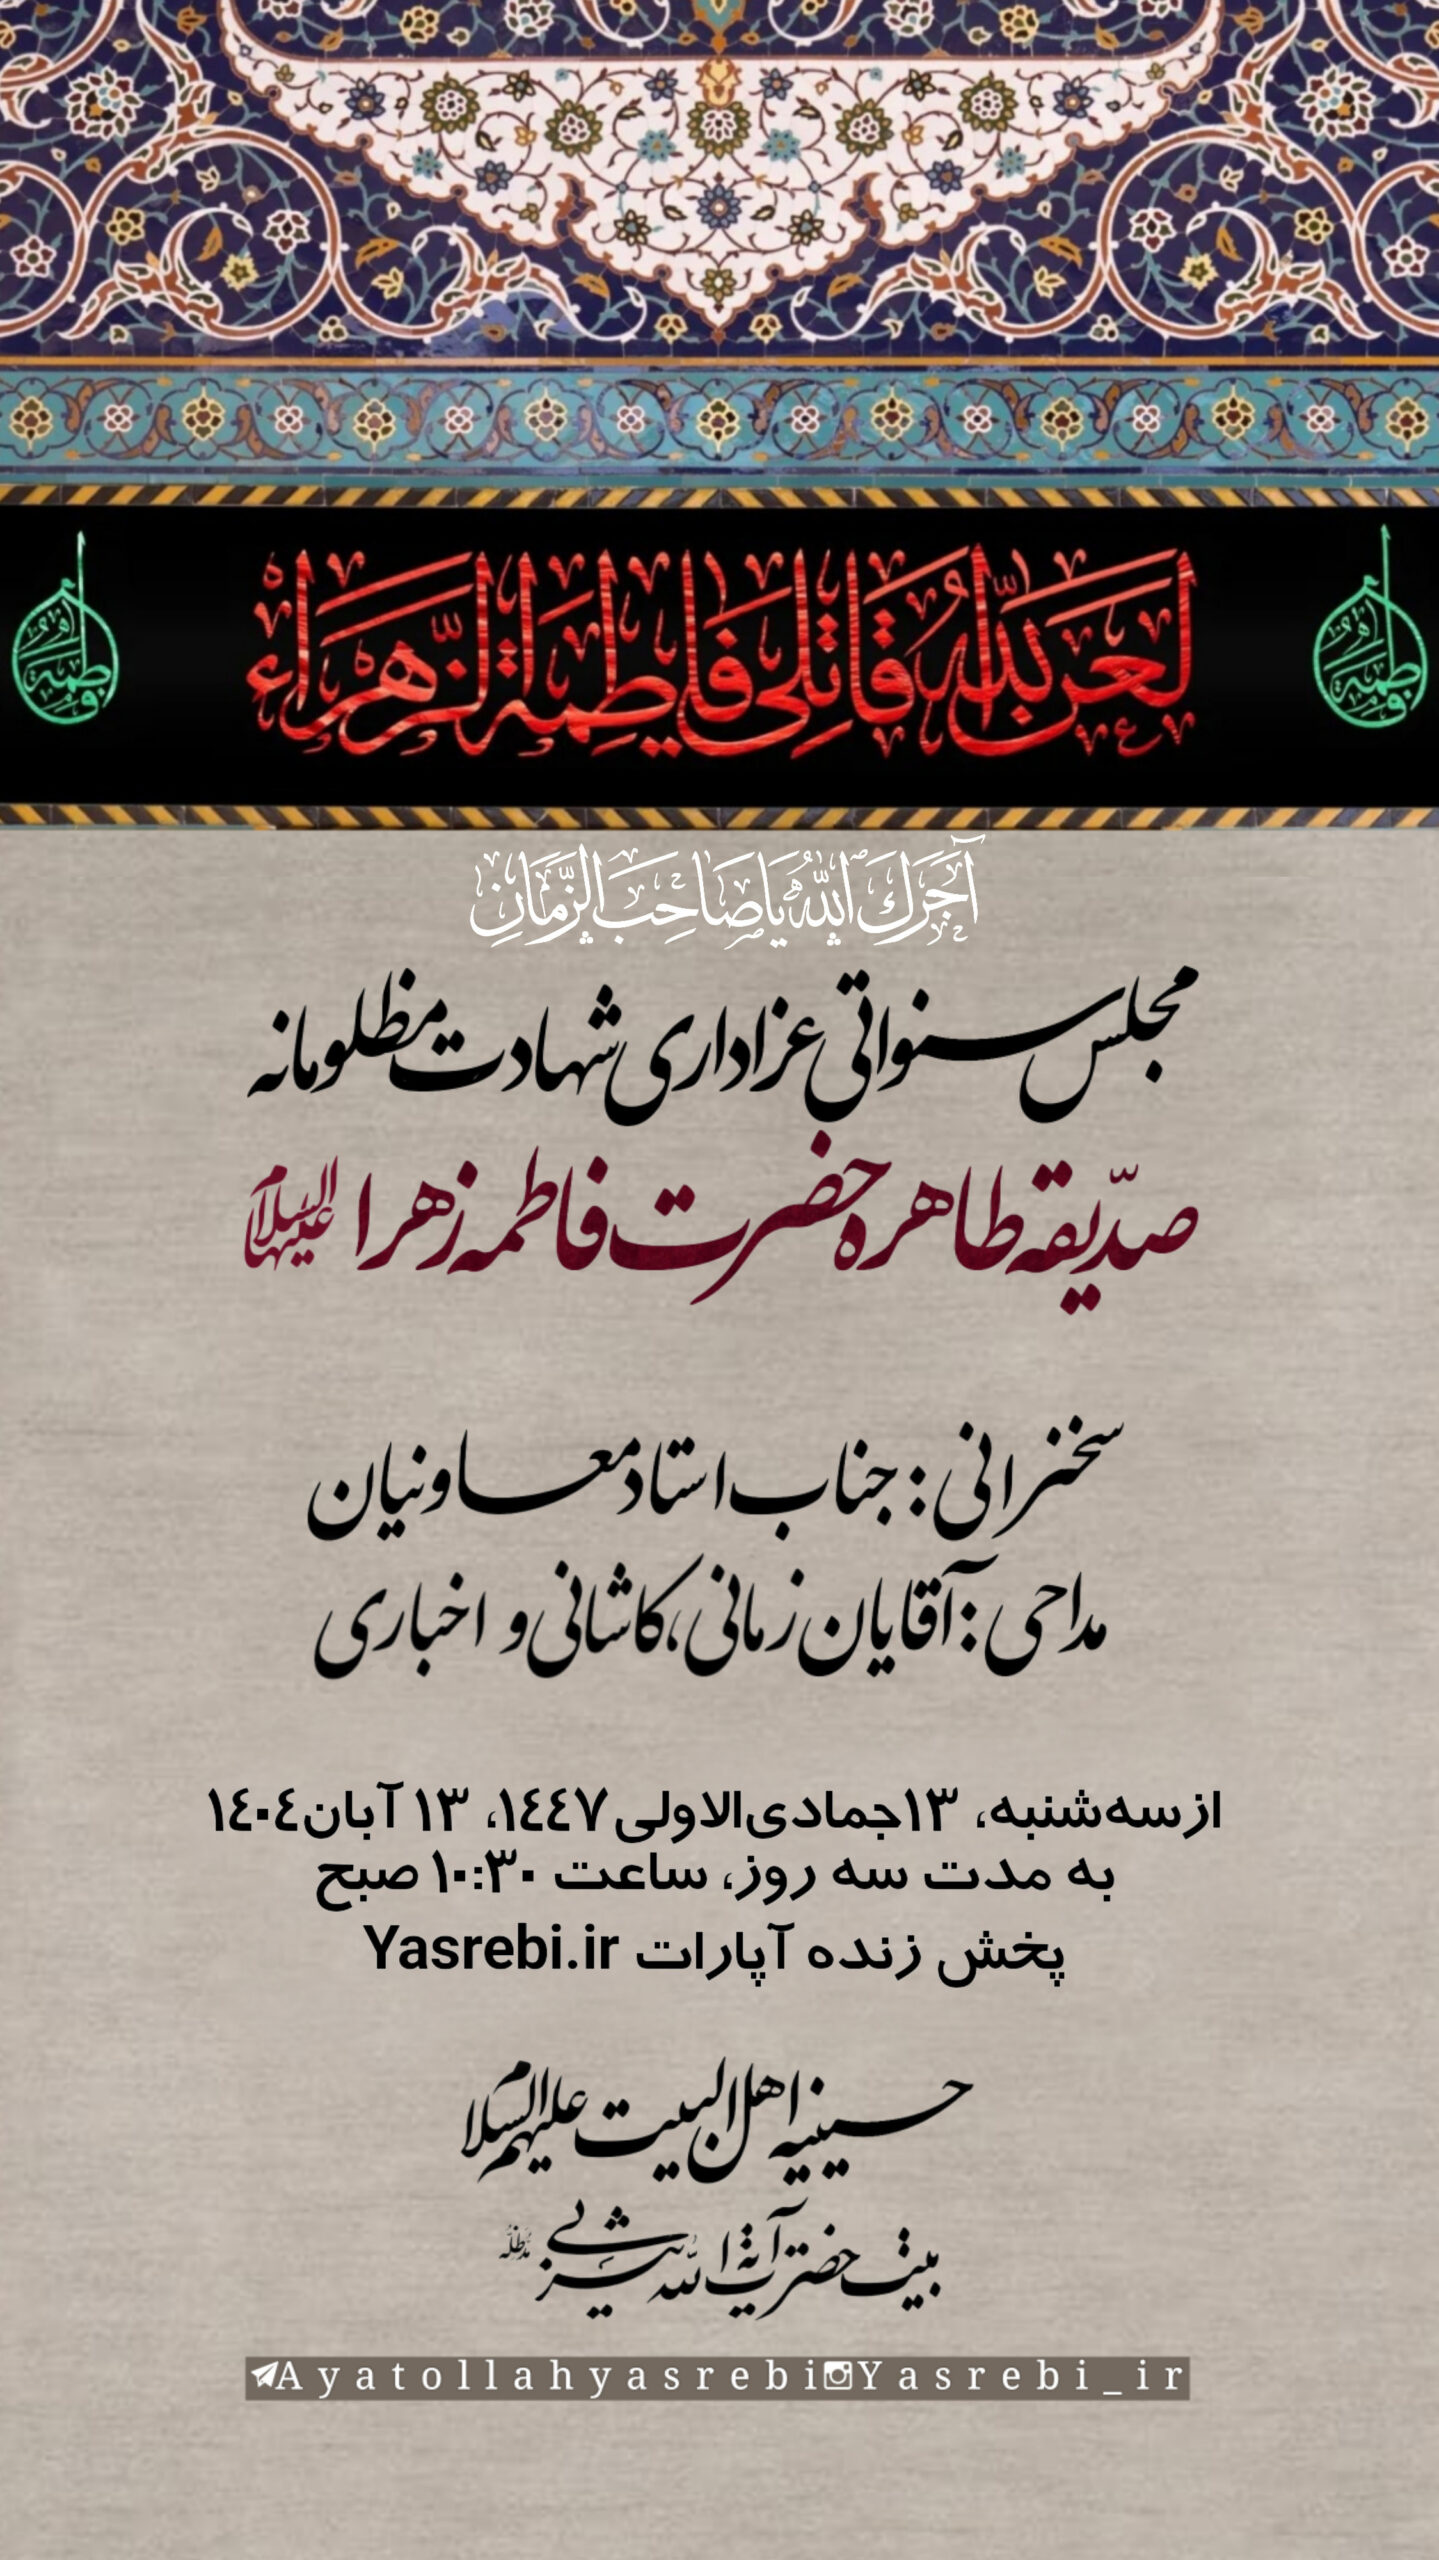 لَعَنَ اللّهُ قَاتِلِی فَاطِمَةَ الزَّهْرَاءْ
فاطمه
فاطمه
آجَرَكَ اللّهُ یَا صَاحِبَ الزَّمَانِ
مجلس سنواتی عزاداری شهادت مظلومانه
صدّیقه طاهره حضرت فاطمه زهرا علیهاالسلام
سخنرانی: جناب استاد معاونیان
مداحی: آقایان زمانی، کاشانی و اخباری
از سه‌شنبه، ۱۳جمادی‌الاولی۱٤٤۷، ۱۳ آبان۱٤۰٤
به مدت سه روز، ساعت ۱۰:۳۰ صبح
پخش زنده آپارات Yasrebi.ir
حسینیه اهل البیت علیهم السلام
بیت حضرت آیة الله یثربی مدظله
Ayatollahyasrebi Yasrebi_ir